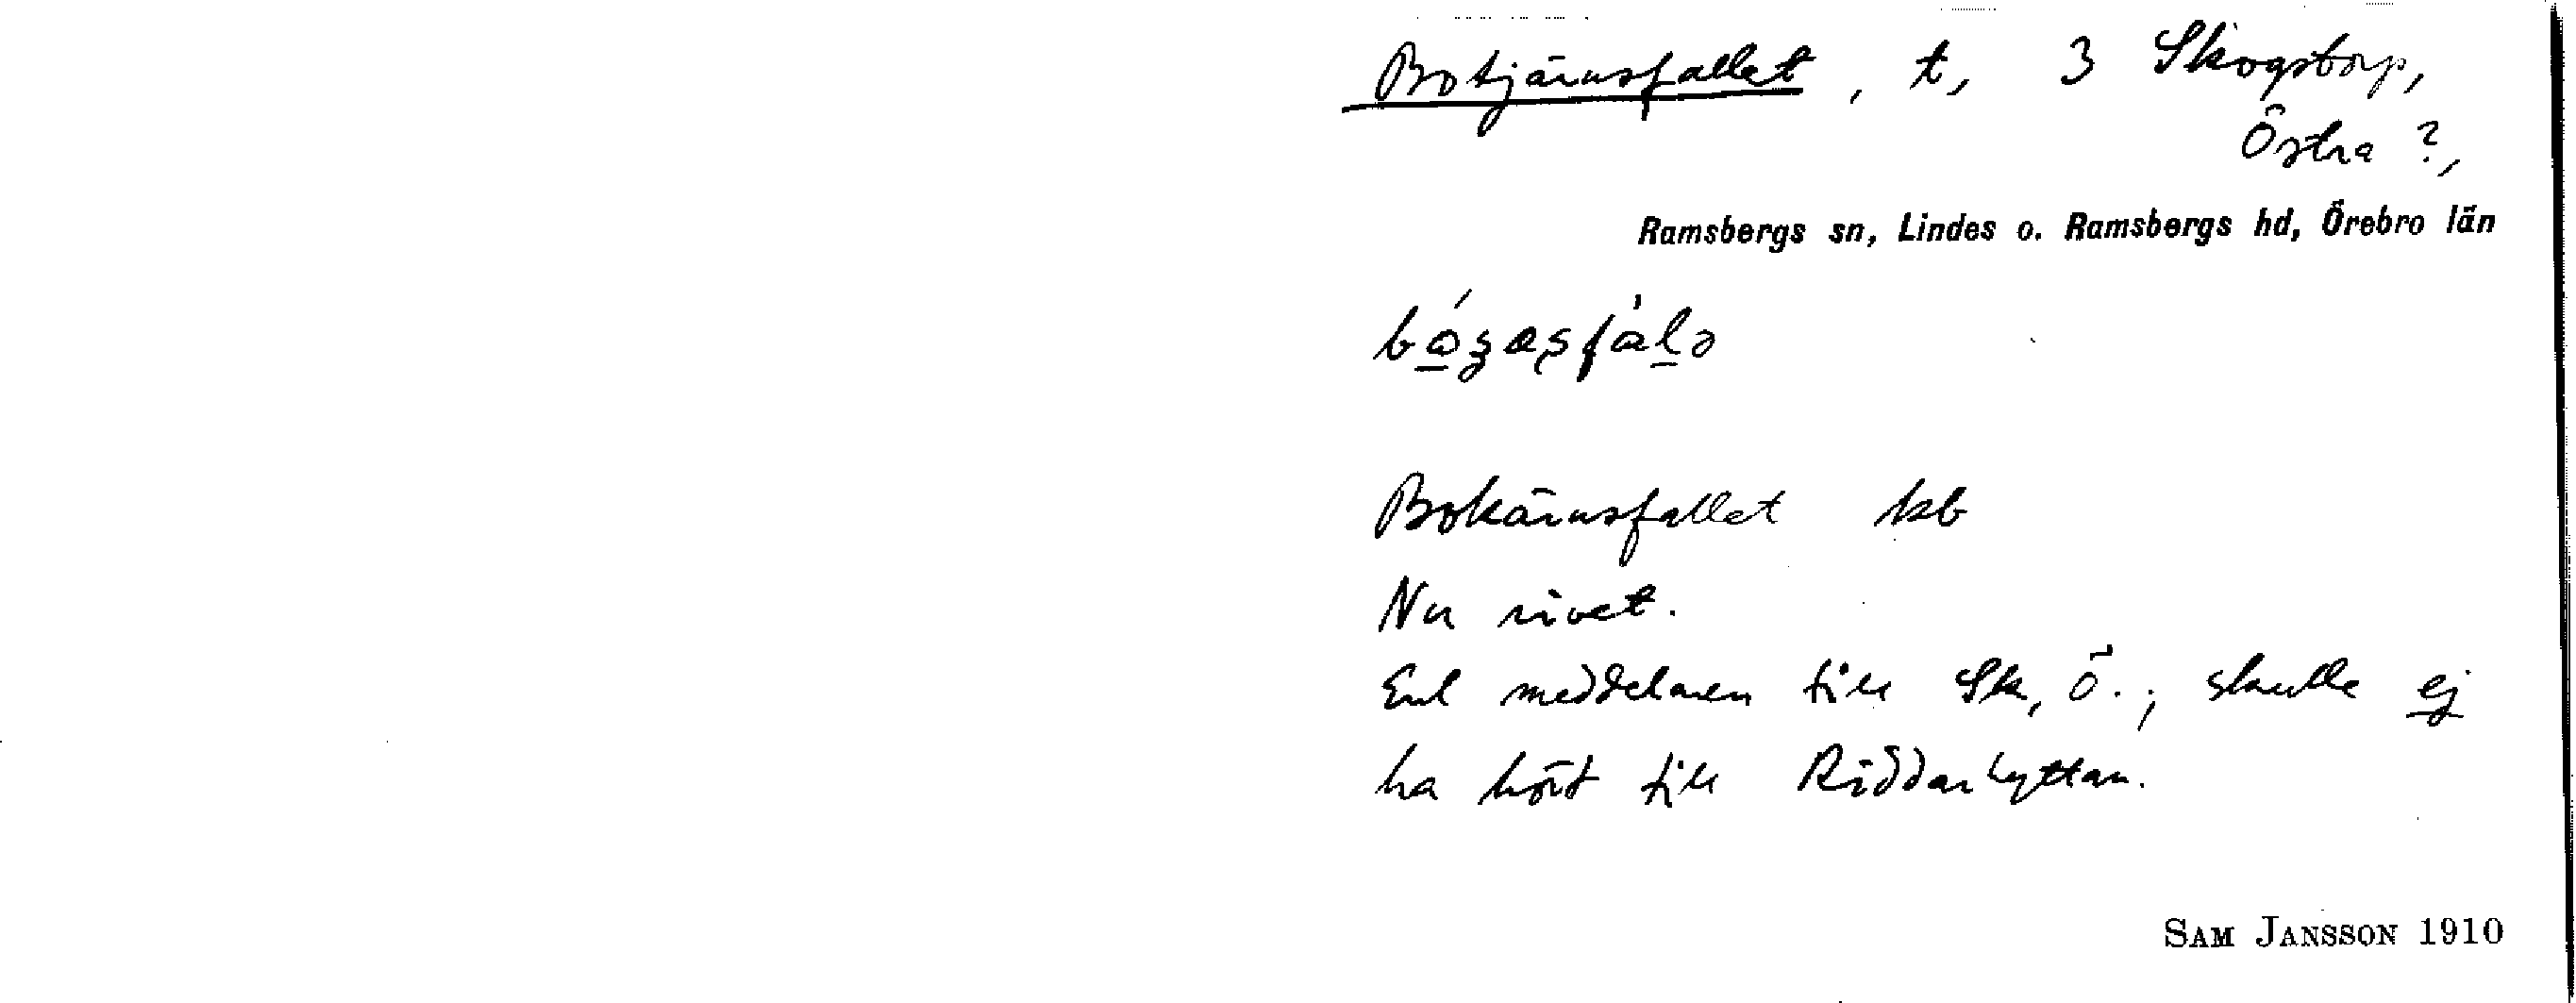 Botjärnsfallet, t, 3 Skogstorp,
Östra ?,
Ramsbergs sn, Lindes o. Ramsbergs hd, Örebro län
Bokärnsfallet kb
Nu rivet.
Enl meddelaren till Sk, Ö.; skulle ej
ha hört till Riddarhyttan.
SAM JANSSON 1910